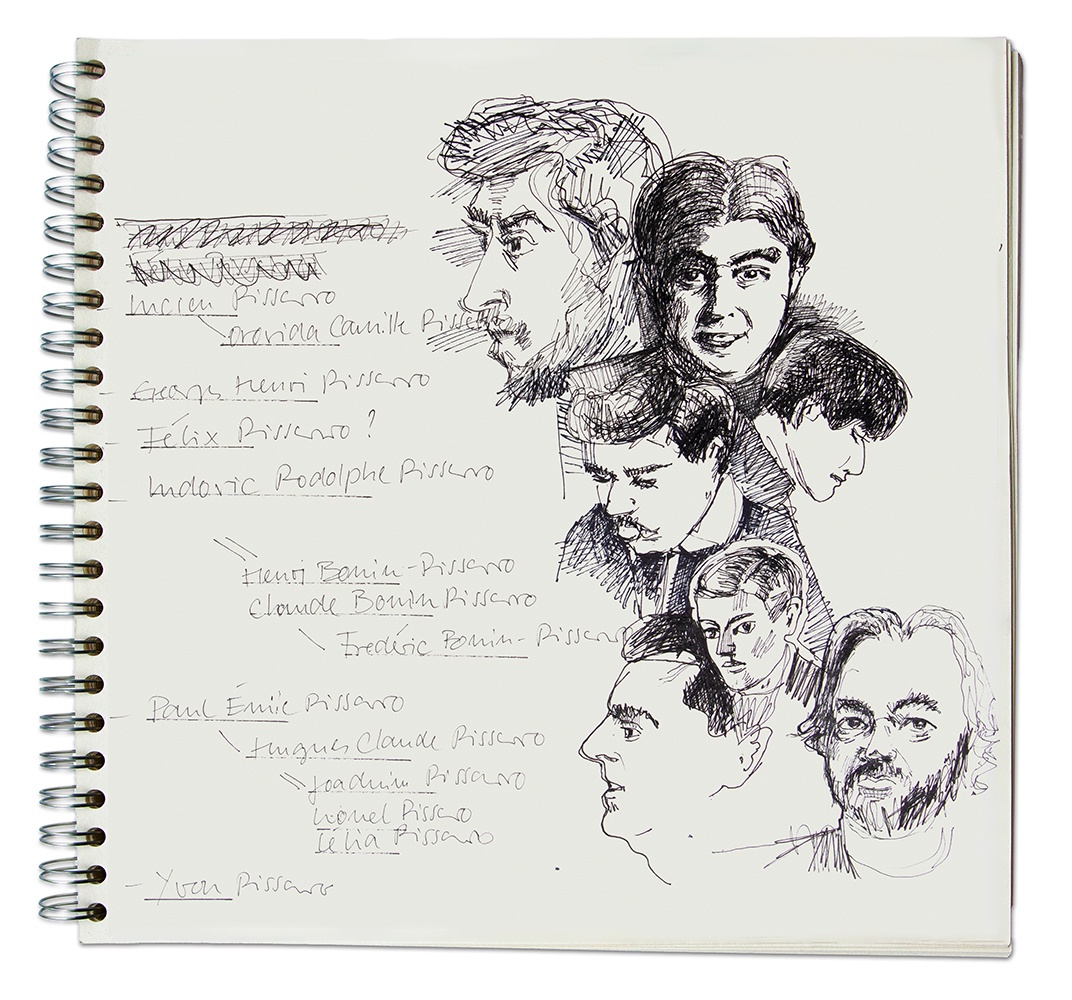 Lucien Pissarro
Orovida Camille Pissarro
- Georges Henri Pissarro
- Félix Pissarro ?
- Ludovic Rodolphe Pissarro
Henri Bonin-Pissarro
Claude Bonin Pissarro
Frédéric Bonin-Pissarro
- Paul Émile Pissarro
Hugues Claude Pissarro
Joachim Pissarro
Lionel Pissarro
Lélia Pissarro
- Yvon Pissarro